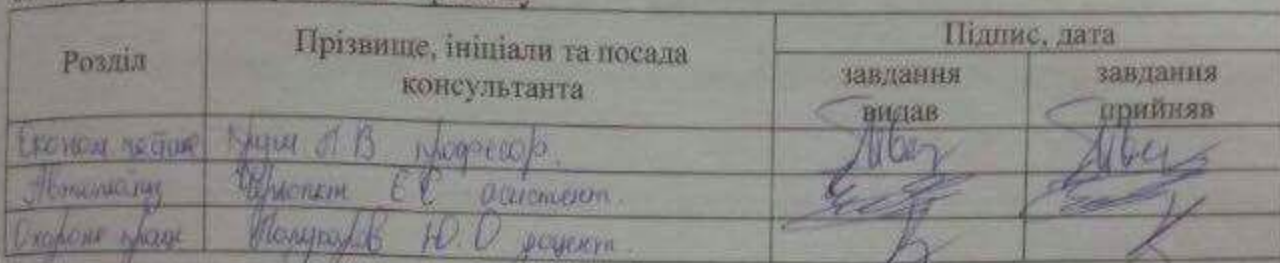 Розділ
Прізвище, ініціали та посада
консультанта
Підпис, дата
завдання
видав
завдання
прийняв
Економ частина Круш П В професор.
Є Є асистент.
Охорона праці Полукаров Ю.О доцент.